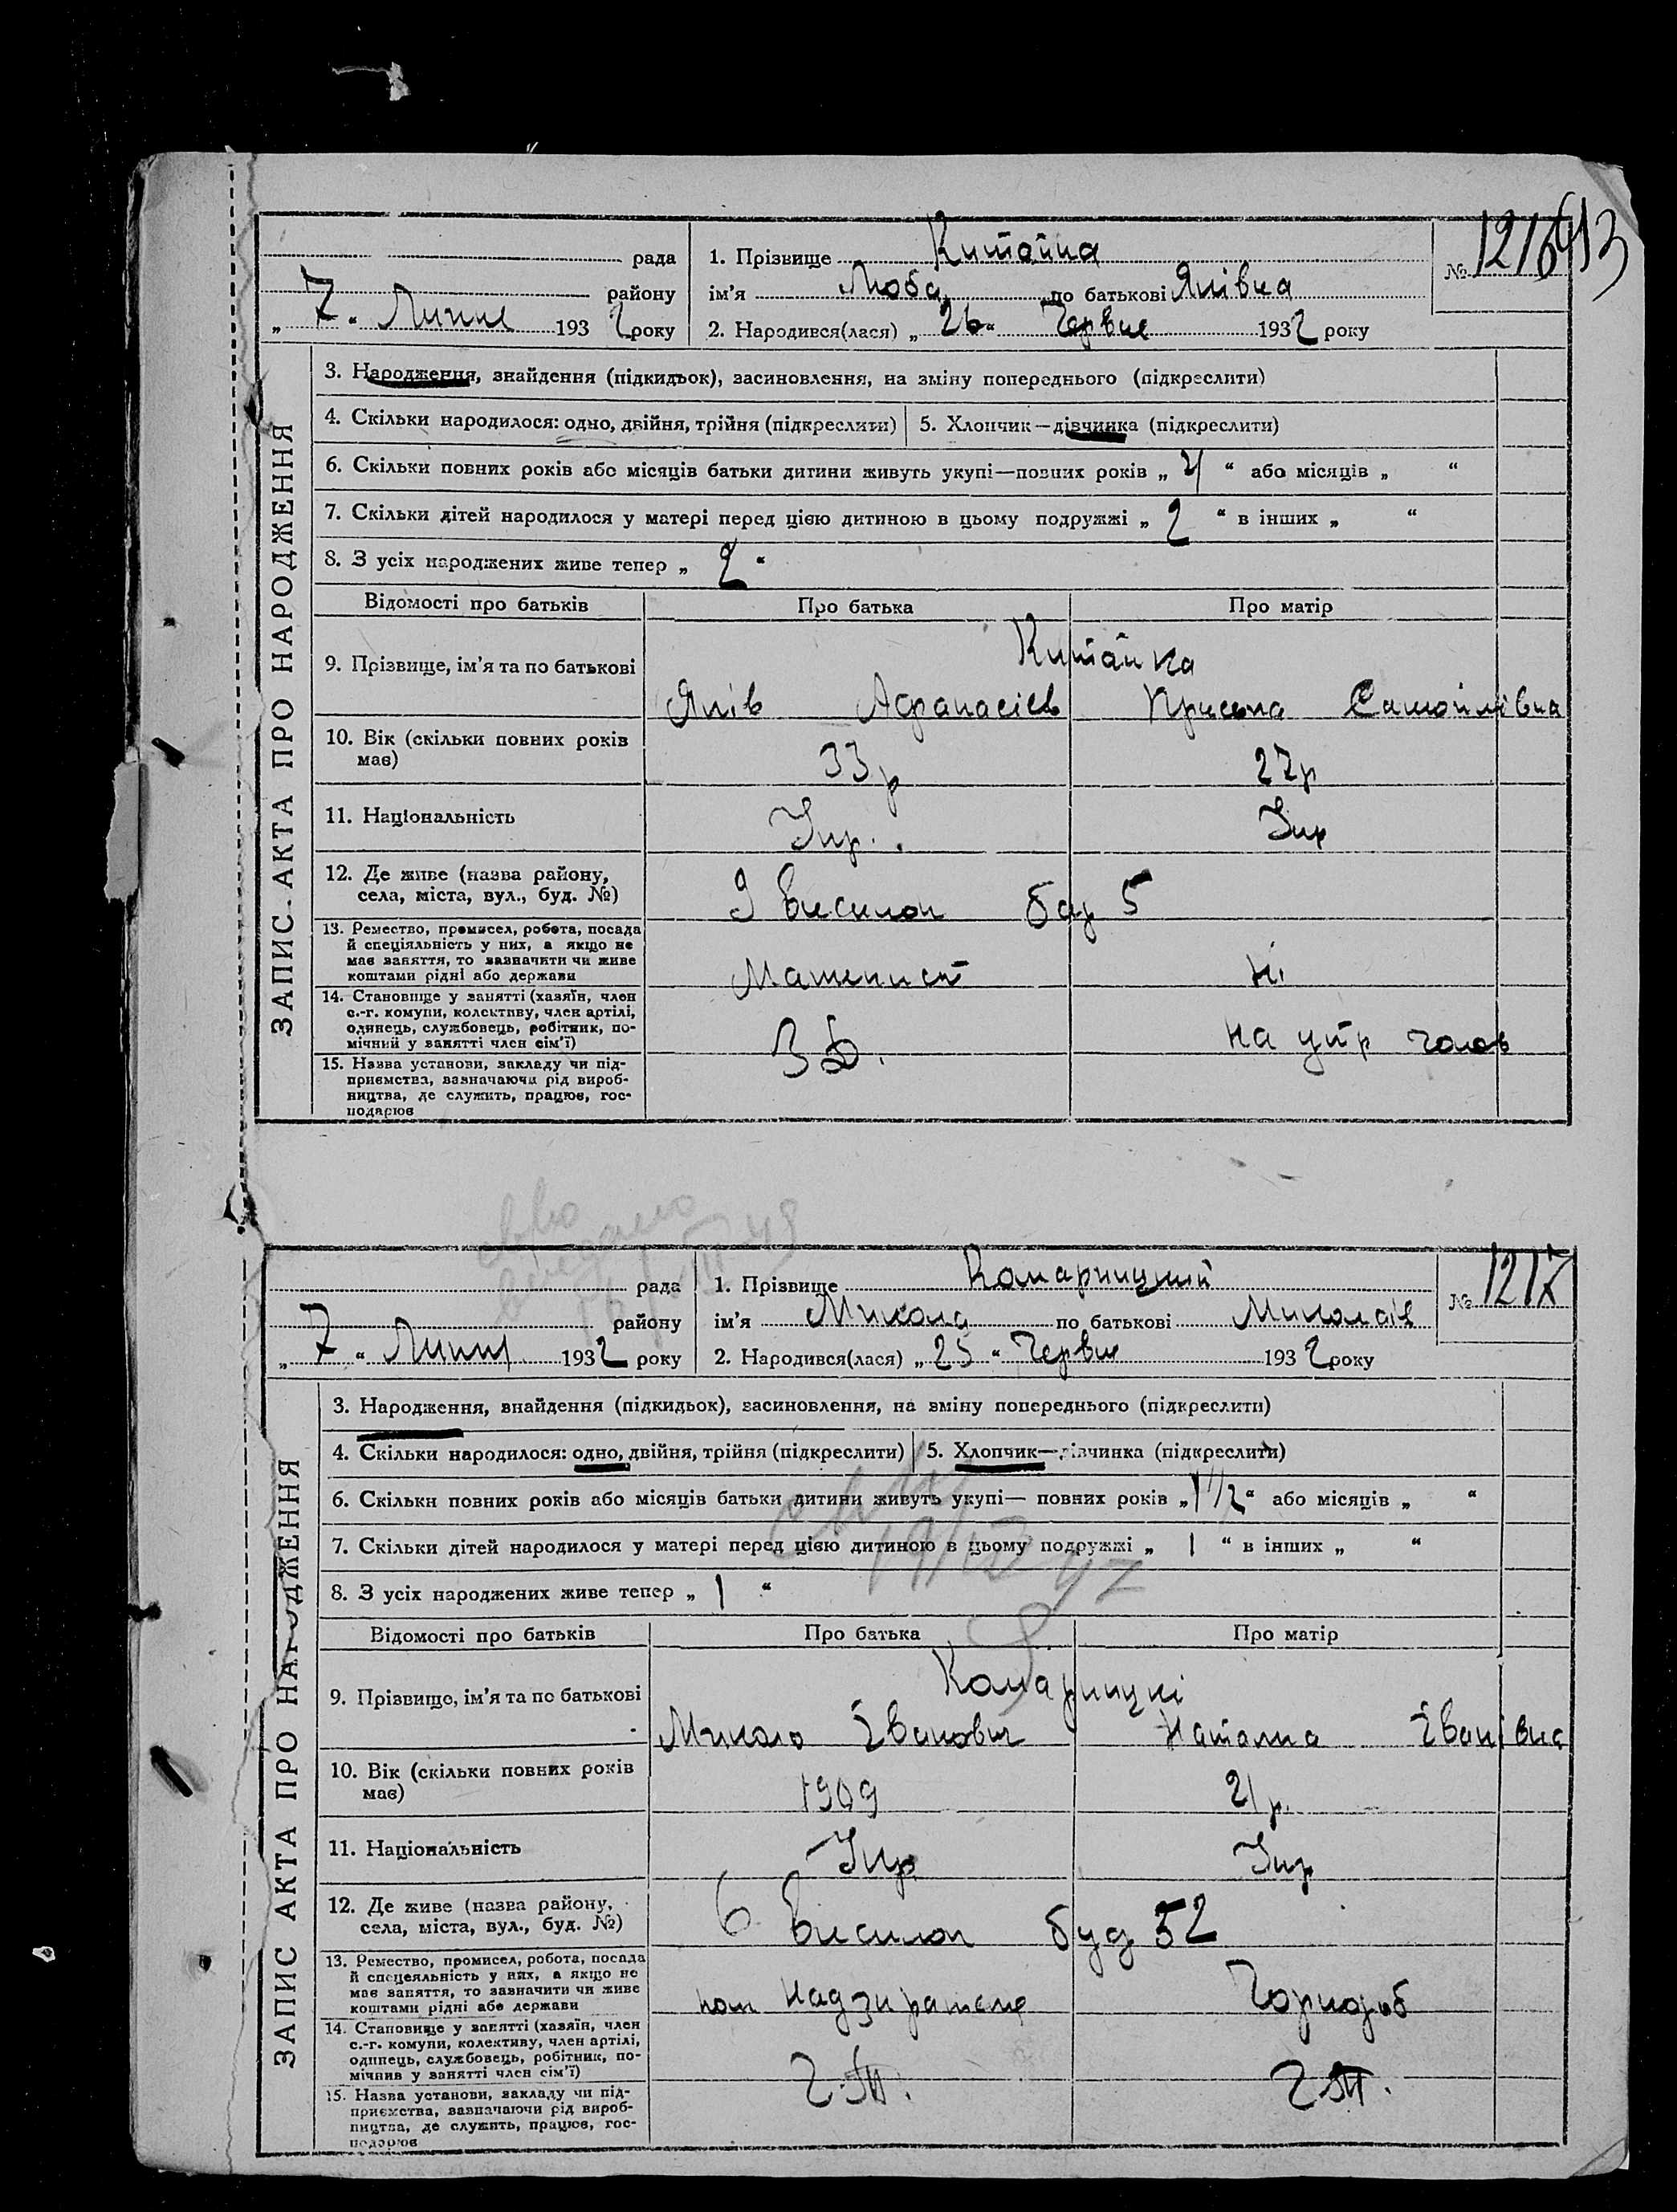 рада
1. Прізвище Китайка
№ 1216
413
району
ім'я Люба по батькові Яківна
„ 7 “ Липня 1932 року
2. Народився(лася) „ 26 “ Червня 1932 року
ЗАПИС АКТА ПРО НАРОДЖЕННЯ
3. Народження, знайдення (підкидьок), засиновлення, на зміну попереднього (підкреслити)
4. Скільки народилося: одно, двійня, трійня (підкреслити) 5. Хлопчик—дівчинка (підкреслити)
6. Скільки повних років або місяців батьки дитини живуть укупі—повних років „ 4 “ або місяців „ “
7. Скільки дітей народилося у матері перед цією дитиною в цьому подружжі „ 2 “ в інших „ “
8. З усіх народжених живе тепер „ 2 “
Відомості про батьків Про батька Про матір
Китайка
9. Прізвище, ім'я та по батькові
Яків Афанасієв Самойлівна
10. Вік (скільки повних років
має)
33 р 27 р
11. Національність Укр. Укр
12. Де живе (назва району,
села, міста, вул., буд. №)
9 висилок бар 5
13. Ремество, промисел, робота, посада
й спеціяльність у них, а якщо не
має заняття, то зазначити чи живе
коштами рідні або держави
Машинист Ні
14. Становище у занятті (хазяїн, член
с.-г. комуни, колективу, член артілі,
одинець, службовець, робітник, по-
мічний у занятті член сім'ї)
на утр чолов
15. Назва установи, закладу чи під-
приємства, зазначаючи рід вироб-
ництва, де служить, працює, гос-
подарює
рада
1. Прізвище Комарницький
№ 1217
району
ім'я Микола по батькові Миколаїв
„ 7 “ Липня 1932 року
2. Народився(лася) „ 25 “ Червня 1932 року
ЗАПИС АКТА ПРО НАРОДЖЕННЯ
3. Народження, знайдення (підкидьок), засиновлення, на зміну попереднього (підкреслити)
4. Скільки народилося: одно, двійня, трійня (підкреслити) 5. Хлопчик—дівчинка (підкреслити)
6. Скільки повних років або місяців батьки дитини живуть укупі— повних років „ 1 1/2 “ або місяців „ “
7. Скільки дітей народилося у матері перед цією дитиною в цьому подружжі „ 1 “ в інших „ “
8. З усіх народжених живе тепер „ 1 “
Відомості про батьків Про батька Про матір
Комарницкі
9. Прізвище, ім'я та по батькові
Микола Іванович Наталка Іванівна
10. Вік (скільки повних років
має)
1909 21 р.
11. Національність Укр Укр
12. Де живе (назва району,
села, міста, вул., буд. №)
6 висилок буд 52
13. Ремество, промисел, робота, посада
й спецеяльність у них, а якщо не
має заняття, то зазначити чи живе
коштами рідні або держави
надзиратель Чорнороб
14. Становище у занятті (хазяїн, член
с.-г. комуни, колективу, член артілі,
одинець, службовець, робітник, по-
мічник у занятті член сім'ї)
15. Назва установи, закладу чи під-
приємства, зазначаючи рід вироб-
ництва, де служить, працює, гос-
подарює